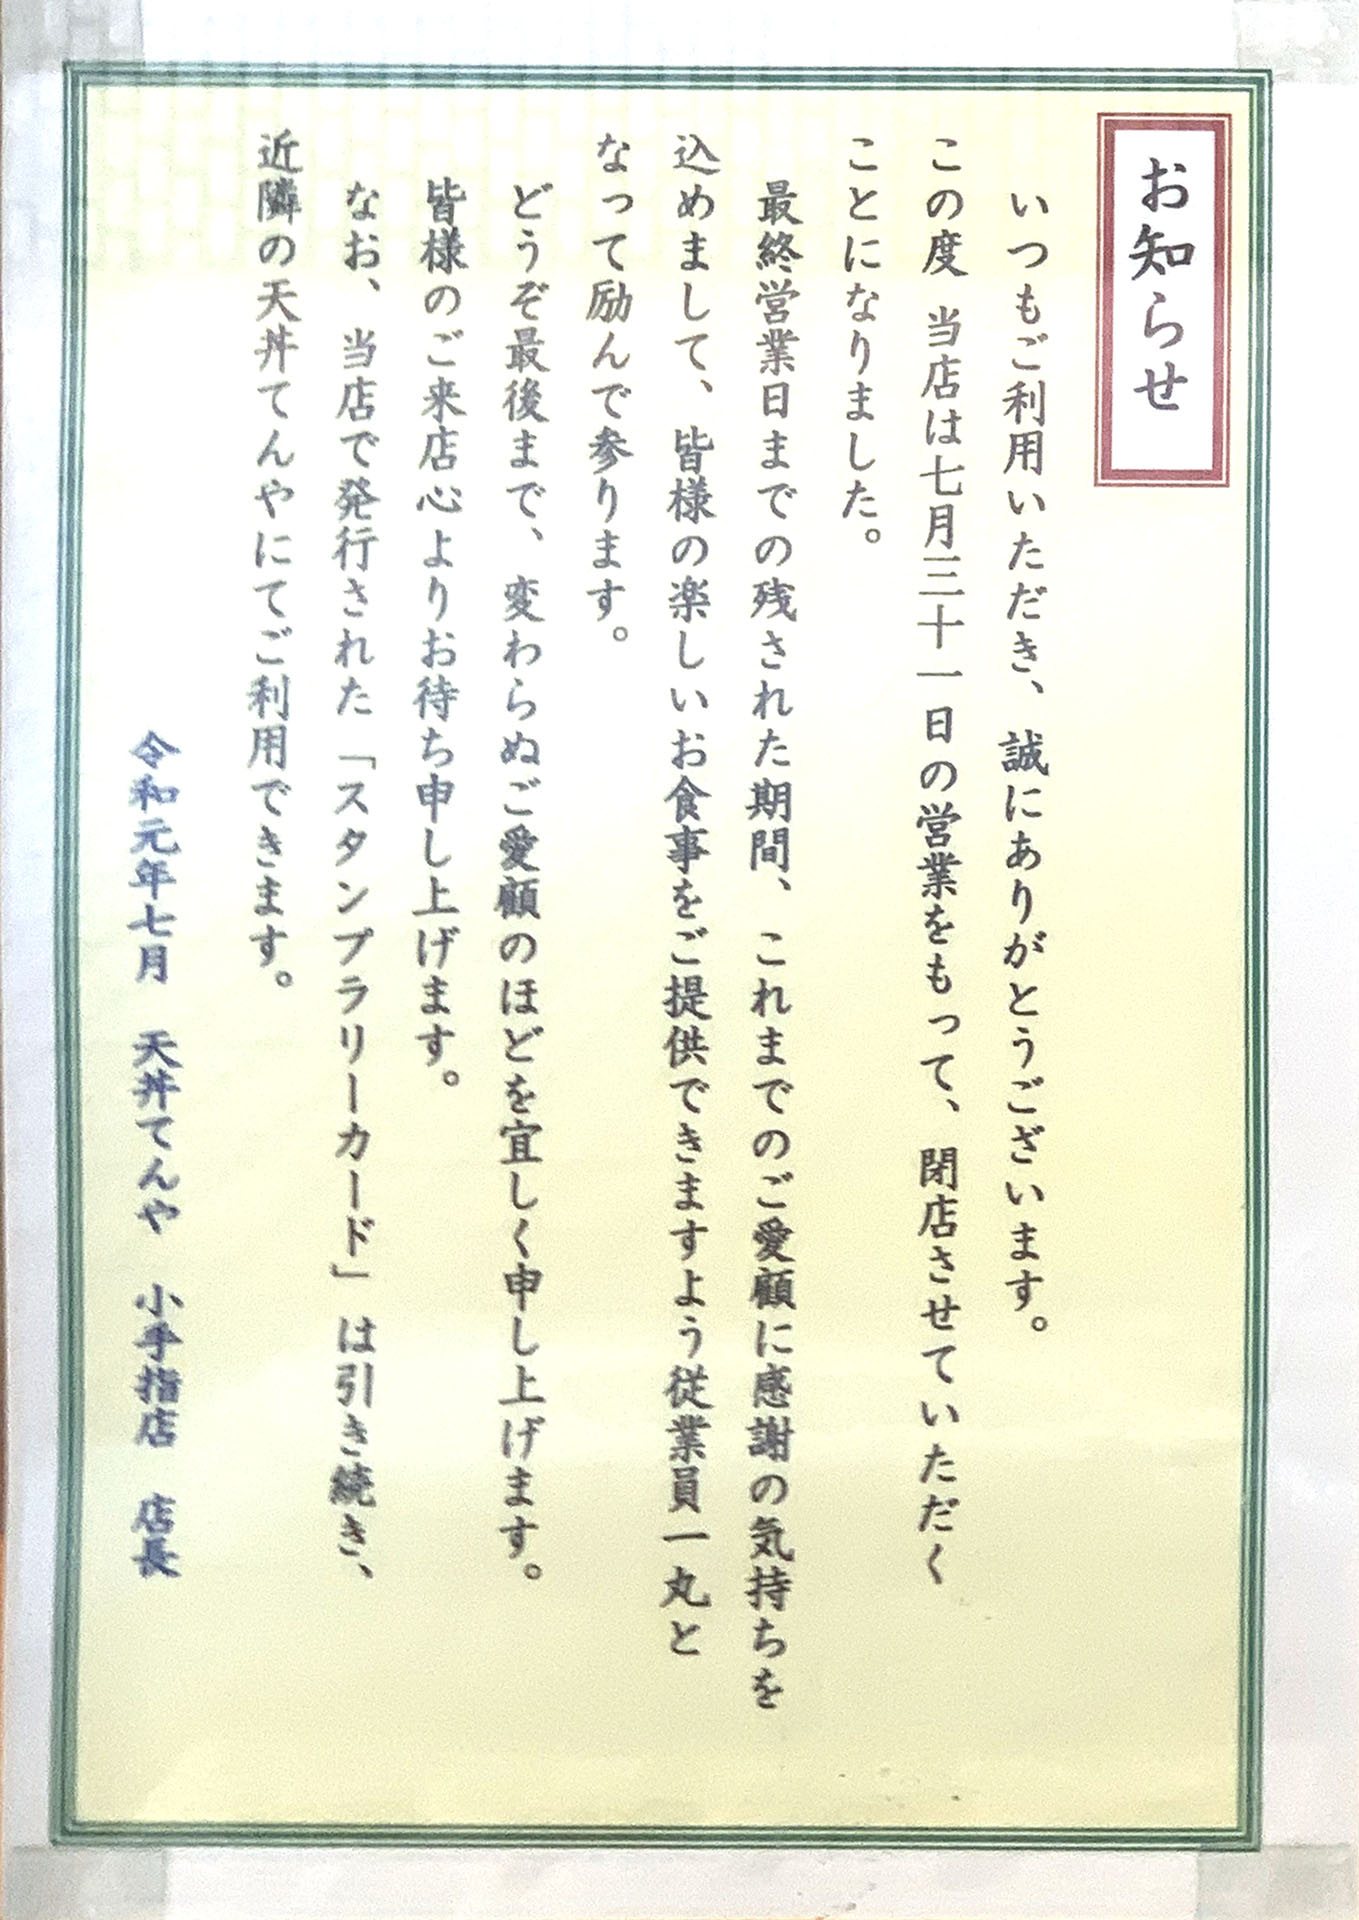 お知らせ
いつもご利用いただき、誠にありがとうございます。
この度 当店は七月三十一日の営業をもって、閉店させていただく
ことになりました。
最終営業日までの残された期間、これまでのご愛顧に感謝の気持ちを
込めまして、皆様の楽しいお食事をご提供できますよう従業員一丸と
なって励んで参ります。
どうぞ最後まで、変わらぬご愛顧のほどを宜しく申し上げます。
皆様のご来店心よりお待ち申し上げます。
なお、当店で発行された「スタンプラリーカード」は引き続き、
近隣の天丼てんやにてご利用できます。
令和元年七月 天丼てんや 小手指店 店長